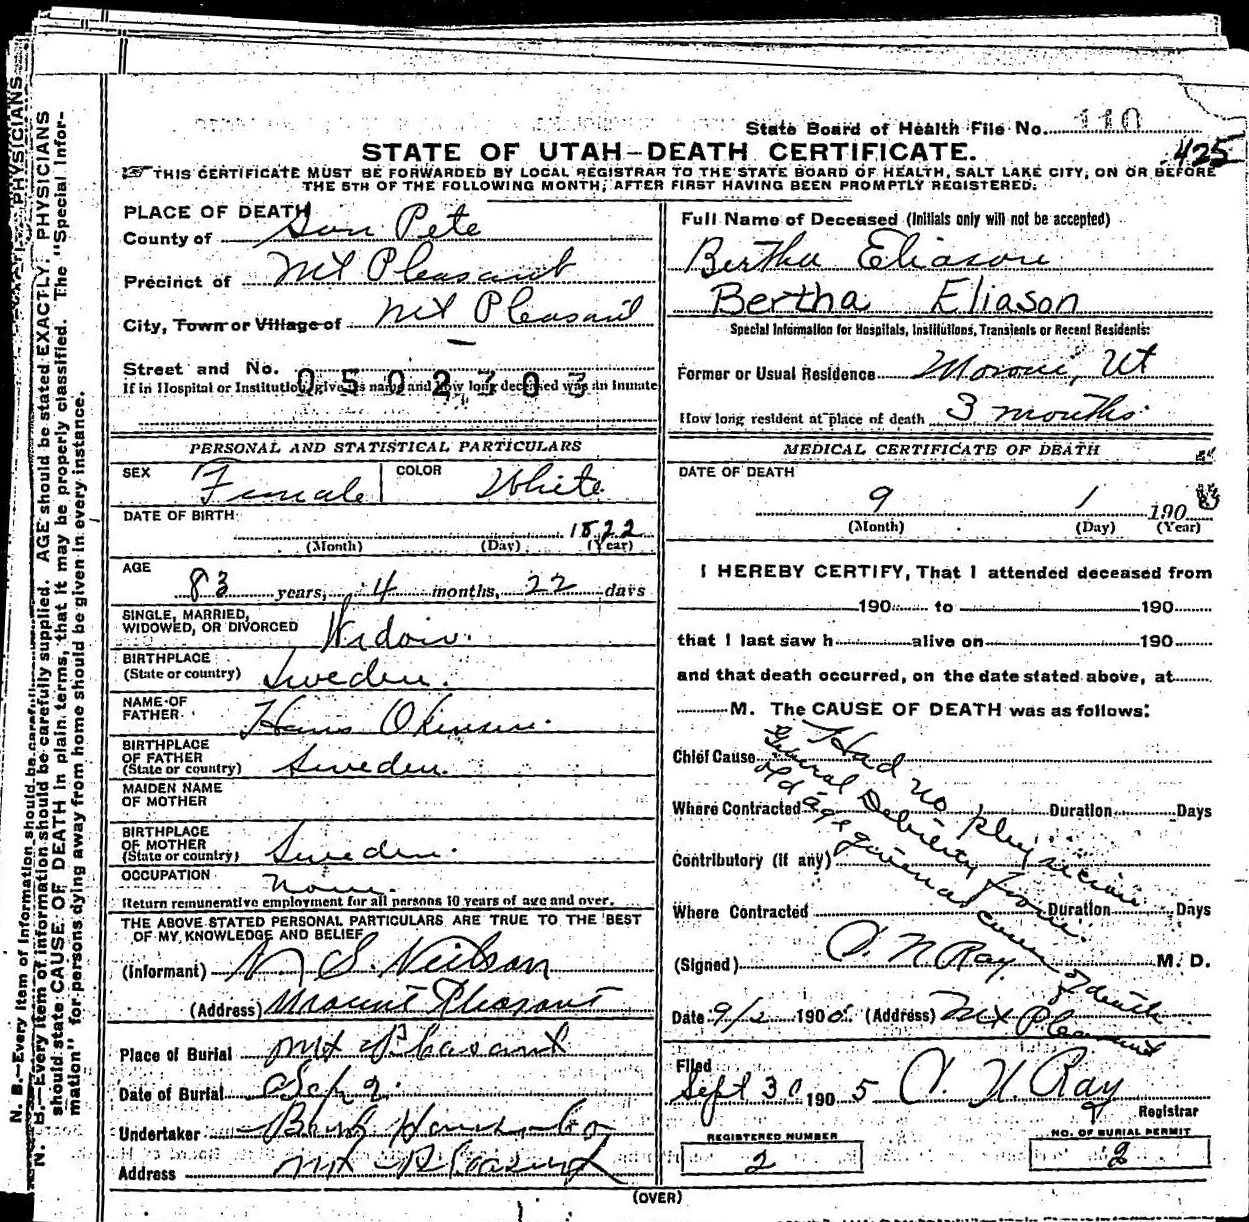 State Board of Health File No. 110
425
STATE OF UTAH—DEATH CERTIFICATE.
THIS CERTIFICATE MUST BE FORWARDED BY LOCAL REGISTRAR TO THE STATE BOARD OF HEALTH, SALT LAKE CITY, ON OR BEFORE
THE 5TH OF THE FOLLOWING MONTH, AFTER FIRST HAVING BEEN PROMPTLY REGISTERED.
PLACE OF DEATH
County of San Pete
Precinct of Mt Pleasant
City, Town or Village of Mt Pleasant
Street and No. —
0502703
If in Hospital or Institution, give its name and how long deceased was an inmate
PERSONAL AND STATISTICAL PARTICULARS
SEX Female COLOR White
DATE OF BIRTH
1822
(Month) (Day) (Year)
AGE
83 years, 4 months, 22 days
SINGLE, MARRIED,
WIDOWED, OR DIVORCED Widow.
BIRTHPLACE
(State or country) Sweden.
NAME OF
FATHER Hans
BIRTHPLACE
OF FATHER
(State or country) Sweden.
MAIDEN NAME
OF MOTHER
BIRTHPLACE
OF MOTHER
(State or country) Sweden.
OCCUPATION None.
Return remunerative employment for all persons 10 years of age and over.
THE ABOVE STATED PERSONAL PARTICULARS ARE TRUE TO THE BEST
OF MY KNOWLEDGE AND BELIEF
(Informant) N. S. Neilson
(Address) Mount Pleasant
Place of Burial Mt Pleasant
Date of Burial Sep 2.
Undertaker
Address Mt Pleasant
Full Name of Deceased (Initials only will not be accepted)
Bertha Eliason
Bertha Eliason
Special Information for Hospitals, Institutions, Transients or Recent Residents:
Former or Usual Residence Moroni, Ut
How long resident at place of death 3 months.
MEDICAL CERTIFICATE OF DEATH
DATE OF DEATH
9 1 190
(Month) (Day) (Year)
I HEREBY CERTIFY, That I attended deceased from
190 to 190
that I last saw h alive on 190
and that death occurred, on the date stated above, at
M. The CAUSE OF DEATH was as follows:
Chief Cause
Where Contracted Duration Days
Contributory (if any)
Where Contracted Duration Days
Had no physician
General Debility from
old age given as cause of death
(Signed) A. N. Ray M. D.
Date 9/2 1905. (Address) Mt Pleasant
Filed
Sept 30 1905 A. N. Ray
Registrar
REGISTERED NUMBER
2
NO. OF BURIAL PERMIT
2
(OVER)
N. B.—Every item of information should be carefully supplied. AGE should be stated EXACTLY. PHYSICIANS
should state CAUSE OF DEATH in plain terms, that it may be properly classified. The "Special Infor-
mation" for persons dying away from home should be given in every instance.
N. B.—Every item of information should be
PHYSICIANS